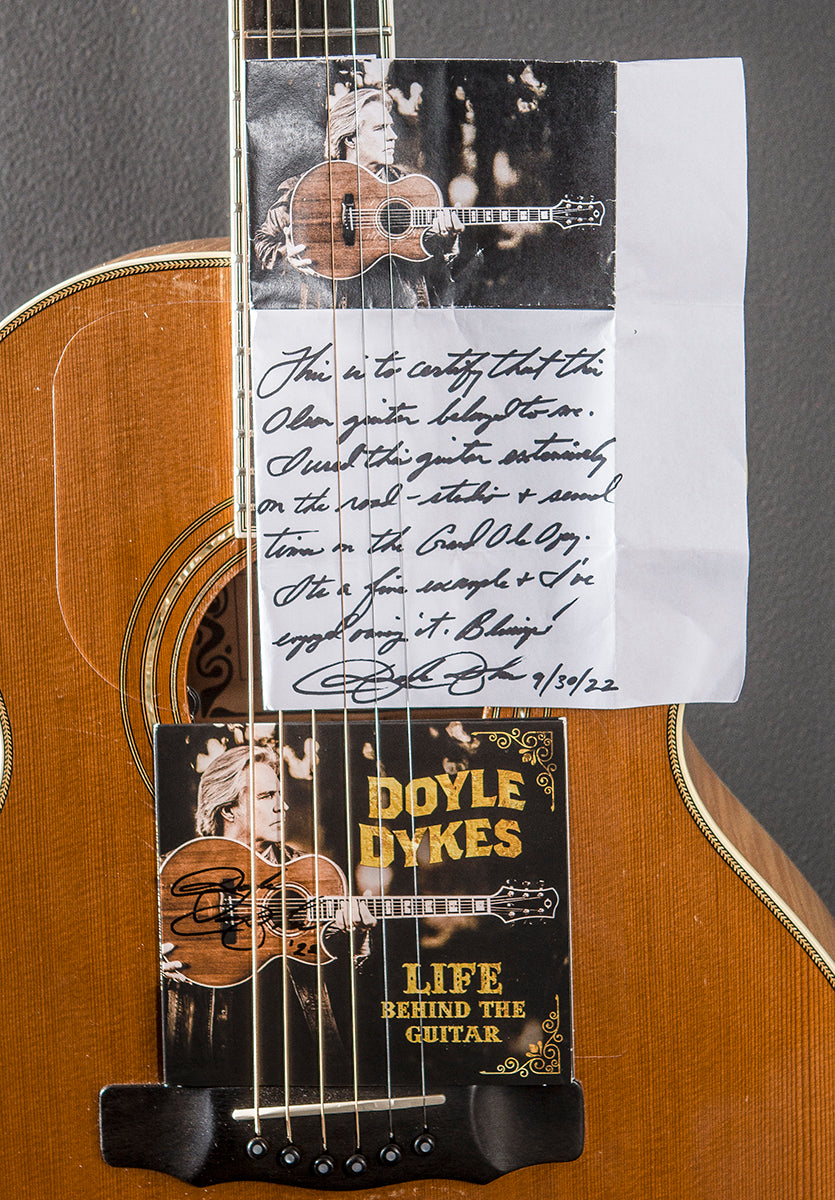 This is to certify that this
Olson guitar belonged to me.
I used this guitar extensively
on the road - studio + several
times on the Grand Ole Opry.
Its a fine example + I've
enjoyed owning it. Blessings!
Doyle Dykes 9/30/22
DOYLE
DYKES
Doyle
Dykes
'22
LIFE
BEHIND THE
GUITAR